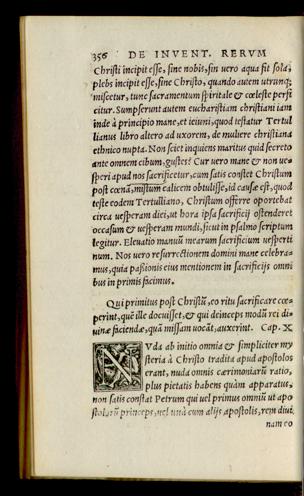 356 DE INVENT. RERVM
Christi incipit esse, sine nobis, sin vero aqua fit sola,
plebs incipit esse, sine Christo, quando autem utrunq;
miscetur, tunc sacramentum spiritale & cœleste perfi
citur. Sumpserunt autem eucharistiam christiani iam
inde à principio mane, et ieiuni, quod testatur Tertul
lianus libro altero ad uxorem, de muliere christiana
ethnico nupta. Non sciet inquiens maritus quid secreto
ante omnem cibum, gustes? Cur vero mane & non ve-
speri apud nos sacrificetur, cum satis constet Christum
post cœnā, mistum calicem obtulisse, id causæ est, quod
teste eodem Tertulliano, Christum offerre oportebat
circa vesperam diei, ut hora ipsa sacrificij ostenderet
occasum & vesperam mundi, sicut in psalmo scriptum
legitur. Eleuatio manuū mearum sacrificium vesperti
num. Nos vero resurrectionem domini mane celebra-
mus, quia passionis eius mentionem in sacrificijs omni
bus in primis facimus.
Qui primitus post Christū, eo ritu sacrificare cœ-
perint, quē ille docuisset, & qui deinceps modū rei di
uinæ faciendæ, quā missam uocāt, auxerint. Cap. X
NVda ab initio omnia & simpliciter my
steria à Christo tradita apud apostolos
erant, nuda omnis cærimoniarū ratio,
plus pietatis habens quàm apparatus,
non satis constat Petrum qui vel primus omniū ut apo
stolorū princeps, vel unà cum alijs apostolis, rem diui
nam co